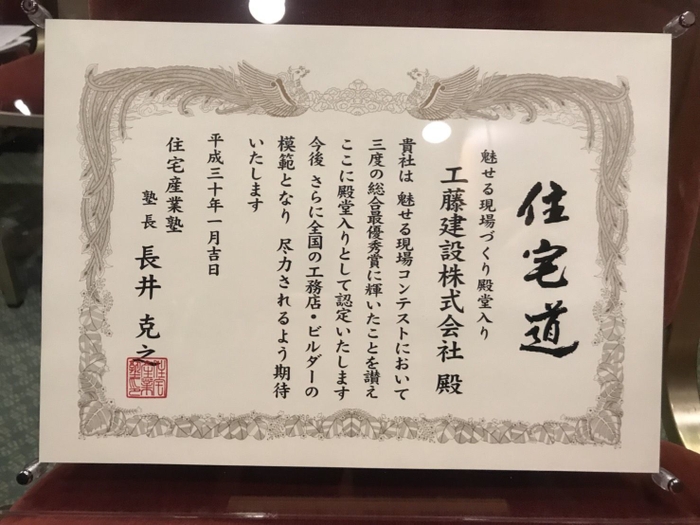 住宅道
魅せる現場づくり殿堂入り
工藤建設株式会社 殿
貴社は 魅せる現場コンテストにおいて
三度の総合最優秀賞に輝いたことを讃え
ここに殿堂入りとして認定いたします
今後 さらに全国の工務店・ビルダーの
模範となり 尽力されるよう期待
いたします
平成三十年一月吉日
住宅産業塾
塾長 長井 克之